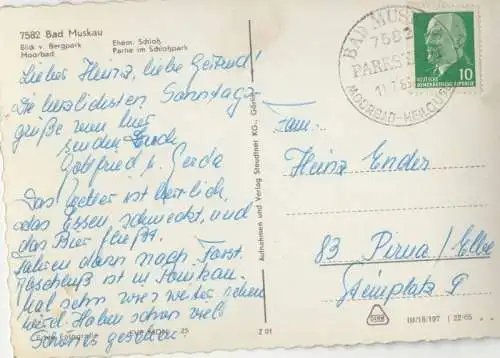 7582 Bad Muskau
Blick v. Bergpark
Moorbad
Ehem. Schloß
Partie im Schloßpark
Lieber Heinz, liebe Gertrud!
Die herzlichsten Sonntags-
grüße von hier
senden Euch
Gottfried u. Gerda
Das Wetter ist herrlich,
das Essen schmeckt, und
das Bier fließt.
Fahren dann nach Forst.
Abschluß ist in
Mal sehn wie weiter sehen
wird. Haben schon viel
Schönes gesehen.
Echte Fotografie
EVP MDN
25
Z 01
Aufnahmen und Verlag Steudtner KG., Görlitz
BAD MUS
7582
MOORBAD-HEILQU
DEUTSCHE
DEMOKRATISCHE REPUBLIK
10
Fam.
Heinz Ender
83 Pirna/Elbe
Steinplatz 9
III/18/197 22/65